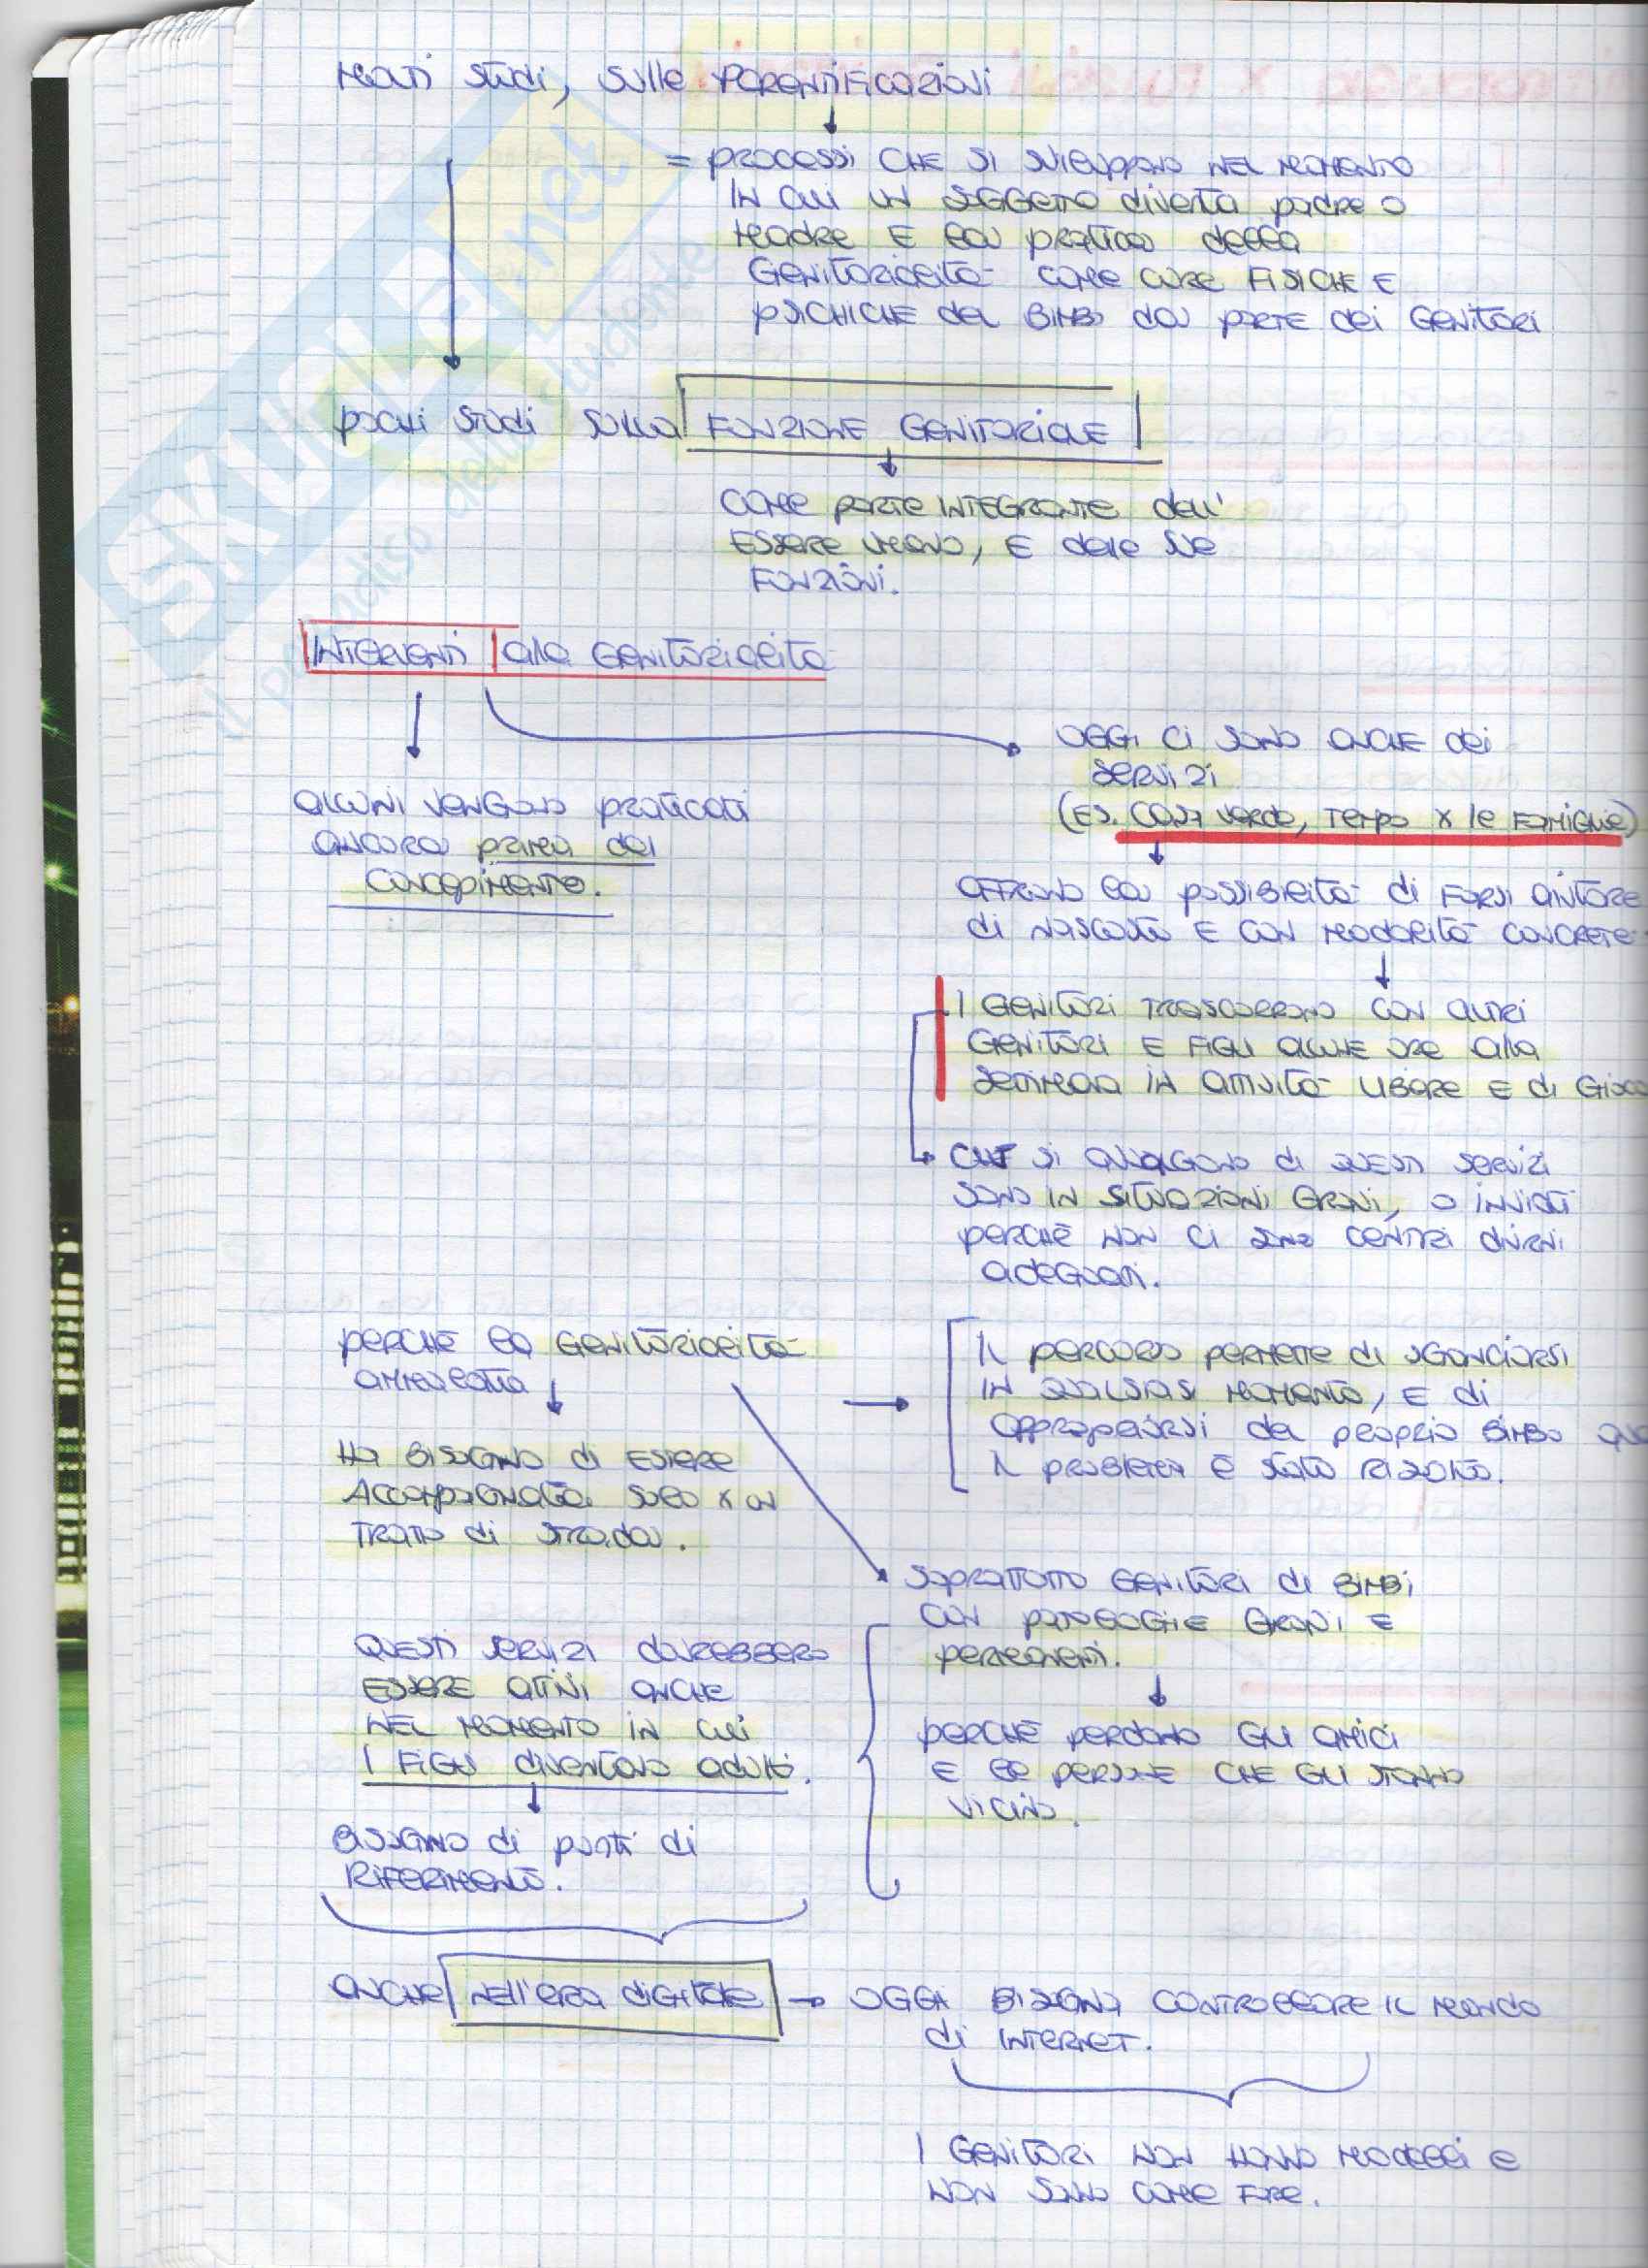 Molti studi, sulle parentificazioni
= processi che si sviluppano nel momento
in cui un soggetto diventa padre o
madre e la pratica della
genitorialità come cure fisiche e
psichiche del bimbo da parte dei genitori
pochi studi sulla funzione genitoriale
come parte integrante dell'
essere umano, e delle sue
funzioni.
Interventi alla genitorialità
oggi ci sono anche dei
servizi
(es. casa verde, tempo x le famiglie)
alcuni vengono praticati
ancora prima del
concepimento.
offrono la possibilità di farsi aiutare
di nascosto e con modalità concrete
I genitori trascorrono con altri
genitori e figli alcune ore alla
settimana in attività libere e di gioco
che si avvalgono di questi servizi
sono in situazioni gravi, o inviati
perchè non ci sono centri diurni
adeguati.
perchè la genitorialità
ammalata
Il percorso permette di sganciarsi
in qualsiasi momento, e di
appropriarsi del proprio bimbo
il problema è stato risolto.
Ha bisogno di essere
accompagnata solo x un
tratto di strada.
soprattutto genitori di bimbi
con patologie gravi e
permanenti.
questi servizi dovrebbero
essere attivi anche
nel momento in cui
i figli diventano adulti.
perchè perdono gli amici
e le persone che gli stanno
vicino.
bisogno di punti di
riferimento.
anche nell'era digitale → oggi bisogna controllare il mondo
di internet.
I genitori non hanno modelli e
non sanno come fare.
SKUOLA.net
il paradiso dello studente